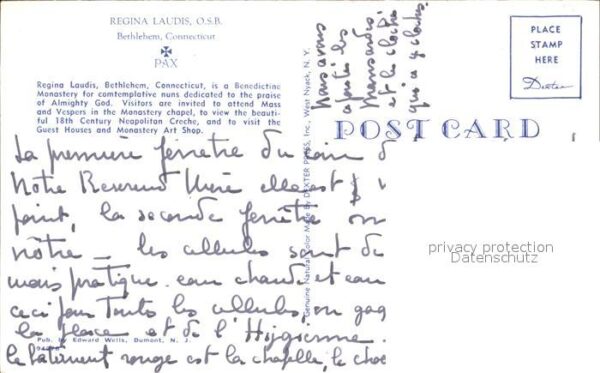 REGINA LAUDIS, O.S.B.
Bethlehem, Connecticut
PAX
Regina Laudis, Bethlehem, Connecticut, is a Benedictine
Monastery for contemplative nuns dedicated to the praise
of Almighty God. Visitors are invited to attend Mass
and Vespers in the Monastery chapel, to view the beauti-
ful 18th Century Neapolitan Creche, and to visit the
Guest Houses and Monastery Art Shop.
La première fenêtre du coin d
Notre Reverend Mère elle est
point, la seconde fenêtre on
nôtre _ les cellules sont de
mais pratique eau chaude et eau
ceci pour toutes les cellules, on gag
la place et de l'Higienne
Pub. by Edward Wells, Dumont, N. J.
le bâtiment rouge est la chapelle, le choe
nous avons
les
et les cloches
qui a 4 cloches.
Genuine Natural Color Made By DEXTER PRESS, Inc., West Nyack, N. Y.
PLACE
STAMP
HERE
Dexter
POST CARD
privacy protection
Datenschutz